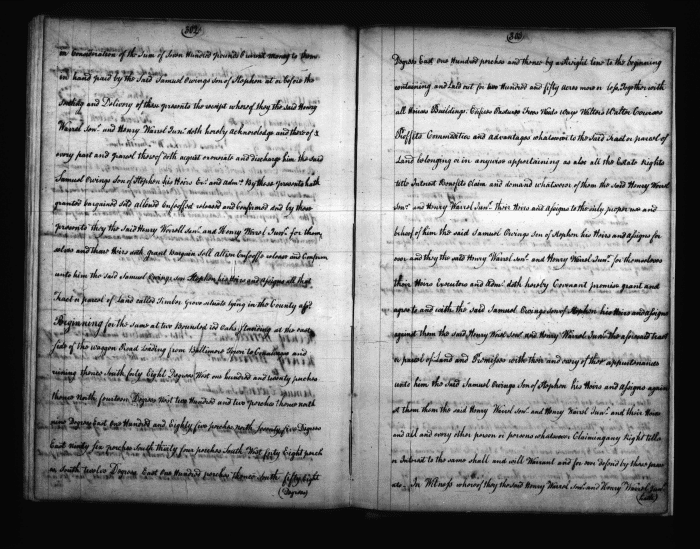 302
in Consideration of the Sum of Seven Hundred pounds Current money to them
in hand paid by the Said Samuel Owings Son of Stephen at or before the
Sealing and Delivery of these presents the receipt whereof they the said Henry
Worrel Senr. and Henry Worrel Junr. doth hereby acknowledge and thereof &
every part and parcel thereof doth acquit exonerate and discharge him the said
Samuel Owings Son of Stephen his Heirs Exs. and Adms. By these presents hath
granted bargained Sold aliened Enfeoffed released and confirmed and by these
presents they the Said Henry Worrell Senr. and Henry Worrel Junr. for them
selves and their Heirs doth grant bargain Sell Alien Enfeoffe release and Confirm
unto him the Said Samuel Owings son of Stephen his Heirs and assigns all that
Tract or parcel of Land called Timber Grove situate lying in the County afsd
Beginning for the same at two Bounded red Oaks Standing at the east
side of the wagon Road leading from Baltimore Town to and
runing thence South fifty Eight Degrees West one hundred and twenty perches
thence North fourteen Degrees West two Hundred and two perches thence north
nine Degrees East One Hundred and Eighty five perches north Seventy five Degrees
East ninety six perches South thirty four perches South West forty Eight perch
es South twelve Degrees East One Hundred perches thence South fifty Eight
(Degrees
303
Degrees East one Hundred perches and thence by a straight line to the beginning
containing and Laid out for two hundred and fifty acres more or less Together with
all Houses Buildings Edifices Pastures Trees Woods Ways Waters Water Courses
Proffitts Commodities and advantages whatsoever to the Said Tract or parcel of
Land belonging or in anywise appertaining as also all the Estate Right
title Interest Benefits Claim and demand whatsoever of them the said Henry Worrel
Senr. and Henry Worrel Junr. their Heirs and assigns to the only proper use and
behoof of him the said Samuel Owings Son of Stephen his Heirs and assigns for
ever and they the said Henry Worrel Senr. and Henry Worrel Junr. for themselves
their Heirs Executors and Adms. doth hereby Covenant promise grant and
agree to and with the said Samuel Owings Son of Stephen his Heirs and assigns
against them the said Henry Worrel Senr. and Henry Worrel Junr. the aforesaid tract
or parcel of Land and Premises with their and every of their appurtenances
unto him the Said Samuel Owings Son of Stephen his Heirs and assigns against
them the said Henry Worrel Senr. and Henry Worrel Junr. and their Heirs
and all and every other person or persons whatsoever Claiming any Right title
or Interest to the same shall and will Warrant and for ever defend by these prese
nts. In Witness whereof they the said Henry Worrel Senr. and Henry Worrel Junr.